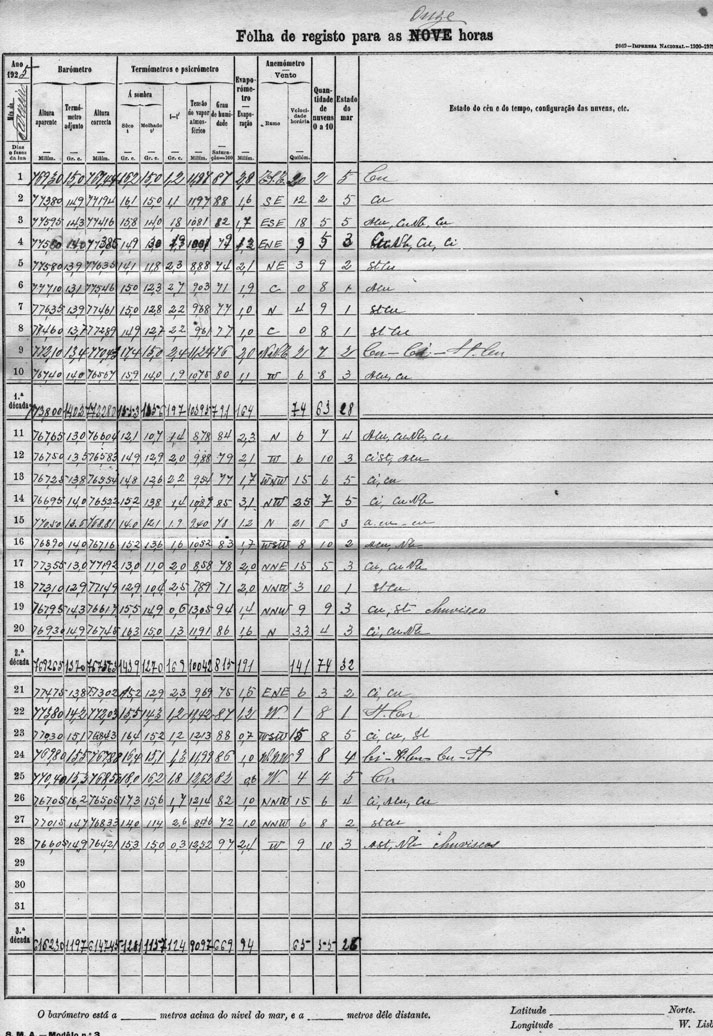 Onze
Fôlha de registo para as NOVE horas
2087—IMPRENSA NACIONAL—1920-192
Ano 1925 Barómetro Termómetros e psicrómetro Evaporómetro Anemómetro Quantidade de nuvens 0 a 10 Estado do mar Estado do céu e do tempo, configuração das nuvens, etc.
Mês de Dias e fases da lua
Altura aparente Termómetro adjunto Altura correcta Á sombra Sêco t Molhado t' t—t' Tensão do vapor atmosférico Grau de humidade Evaporação Vento Rumo Velocidade horária
Milím. Gr. c. Milím. Gr. c. Gr. c. Gr. c. Milím. Saturação=100 Milím. Quilóm.
1 769,30 15,0 16,2 15,0 1,2 11,97 87 2,8 20 2 5 Cu
2 773,80 14,9 771,94 16,1 15,0 1,1 11,97 88 1,6 SE 12 2 5 cu
3 775,95 14,3 774,16 15,8 14,0 1,8 10,81 82 1,7 ESE 18 5 5 Acu, CuNb, Cu
4 775,80 14,0 14,9 13,0 1,9 79 1,2 ENE 9 5 3 CuNb, Cu, Ci
5 775,80 13,9 14,1 11,8 2,3 8,88 74 2,1 NE 3 9 2 StCu
6 777,10 13,1 775,46 15,0 12,3 2,7 9,03 71 1,9 C 0 8 1 Acu
7 776,35 13,9 774,61 15,0 12,8 2,2 9,68 77 1,0 N 4 9 1 StCu
8 784,60 13,7 772,89 14,9 12,7 2,2 9,61 77 1,0 C 0 8 1 StCu
9 772,10 13,4 17,4 15,0 2,4 11,24 76 2,0 21 7 2 Cu - Ci - St.Cu
10 767,40 14,0 765,67 15,9 14,0 1,9 10,75 80 1,1 W 6 8 3 Acu, cu
1.ª década 773800 1402 772280 197 791 164 74 63 28
11 767,65 13,0 766,04 12,1 10,7 1,4 8,78 84 2,3 N 6 7 4 Acu, CuNb, Cu
12 767,50 13,5 765,83 14,9 12,9 2,0 9,88 79 2,1 W 6 10 3 CiSt, Acu
13 767,25 13,8 765,54 14,8 12,6 2,2 9,54 77 1,7 WNW 15 6 5 Ci, Cu
14 766,95 14,0 765,22 15,2 13,8 1,4 10,89 85 3,1 NW 25 7 5 Ci, CuNb
15 770,50 768,81 14,0 12,1 1,9 9,40 78 1,2 N 21 6 3 a.cu - cu
16 768,90 14,0 767,16 15,2 13,6 1,6 10,52 83 1,7 WSW 8 10 2 Acu, Nb
17 773,55 13,0 771,92 13,0 11,0 2,0 8,58 78 2,0 NNE 15 5 3 Cu, CuNb
18 773,10 12,9 771,49 12,9 10,4 2,5 7,89 71 2,0 NNW 3 10 1 StCu
19 767,95 14,3 766,17 15,5 14,9 0,6 13,05 94 1,4 NNW 9 9 3 Cu, St chuvisco
20 769,30 14,9 767,45 16,3 15,0 1,3 11,91 86 1,6 N 33 4 3 Ci, CuNb
2.ª década 769265 1370 1439 1270 169 10042 815 191 141 74 32
21 774,75 13,8 773,02 15,2 12,9 2,3 9,69 75 1,5 ENE 6 3 2 Ci, Cu
22 773,80 14,2 772,03 15,5 14,3 1,2 11,42 87 1,2 W 1 8 1 St.Cu
23 770,30 15,1 768,43 16,4 15,2 1,2 12,13 88 0,7 WSW 15 8 5 Ci, Cu, St
24 769,80 15,5 16,4 15,1 1,3 11,99 86 1,0 9 8 4 Ci - St.Cu - Cu - St
25 770,40 15,3 768,53 18,0 16,2 1,8 12,62 82 W 4 4 5 Cu
26 767,05 16,2 765,05 17,3 15,6 1,7 12,14 82 1,0 NNW 15 6 4 Ci, Acu, Cu
27 770,15 14,7 768,33 14,0 11,4 2,6 8,46 72 1,0 NNW 6 8 2 StCu
28 766,05 14,9 764,21 15,3 15,0 0,3 12,52 97 2,4 W 9 10 3 Ast, Nb chuviscos
29
30
31
3.ª década 616230 1197 614745 1281 1157 124 9097 669 94 65 55 26
O barómetro está a ______ metros acima do nível do mar, e a ______ metros dêle distante. Latitude ______ Norte.
Longitude ______ W. Lisb
S. M. A. — Modêlo n.º 3